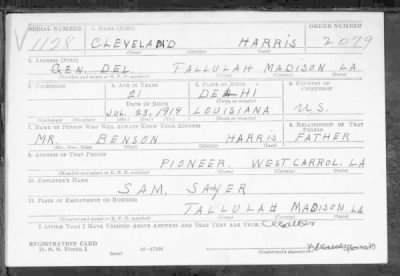 SERIAL NUMBER 1. NAME (Print) ORDER NUMBER
V 1128 CLEVELAND HARRIS 2079
(First) (Middle) (Last)
2. ADDRESS (Print)
GEN. DEL. TALLULAH MADISON LA.
(Number and street or R. F. D. number) (Town) (County) (State)
3. TELEPHONE 4. AGE IN YEARS 5. PLACE OF BIRTH 6. COUNTRY OF CITIZENSHIP
21 DELHI
DATE OF BIRTH (Town or county)
JUL 23, 1919 LOUISIANA U.S.
(Mo.) (Day) (Yr.) (State or country)
7. NAME OF PERSON WHO WILL ALWAYS KNOW YOUR ADDRESS 8. RELATIONSHIP OF THAT PERSON
MR. BENSON HARRIS FATHER
(Mr., Mrs., Miss) (First) (Middle) (Last)
9. ADDRESS OF THAT PERSON
PIONEER, WEST CARROL, LA
(Number and street or R. F. D. number) (Town) (County) (State)
10. EMPLOYER'S NAME
SAM, SAYER
11. PLACE OF EMPLOYMENT OR BUSINESS
TALLULAH MADISON LA
(Number and street or R. F. D. number) (Town) (County) (State)
I AFFIRM THAT I HAVE VERIFIED ABOVE ANSWERS AND THAT THEY ARE TRUE.
REGISTRATION CARD
D. S. S. Form 1